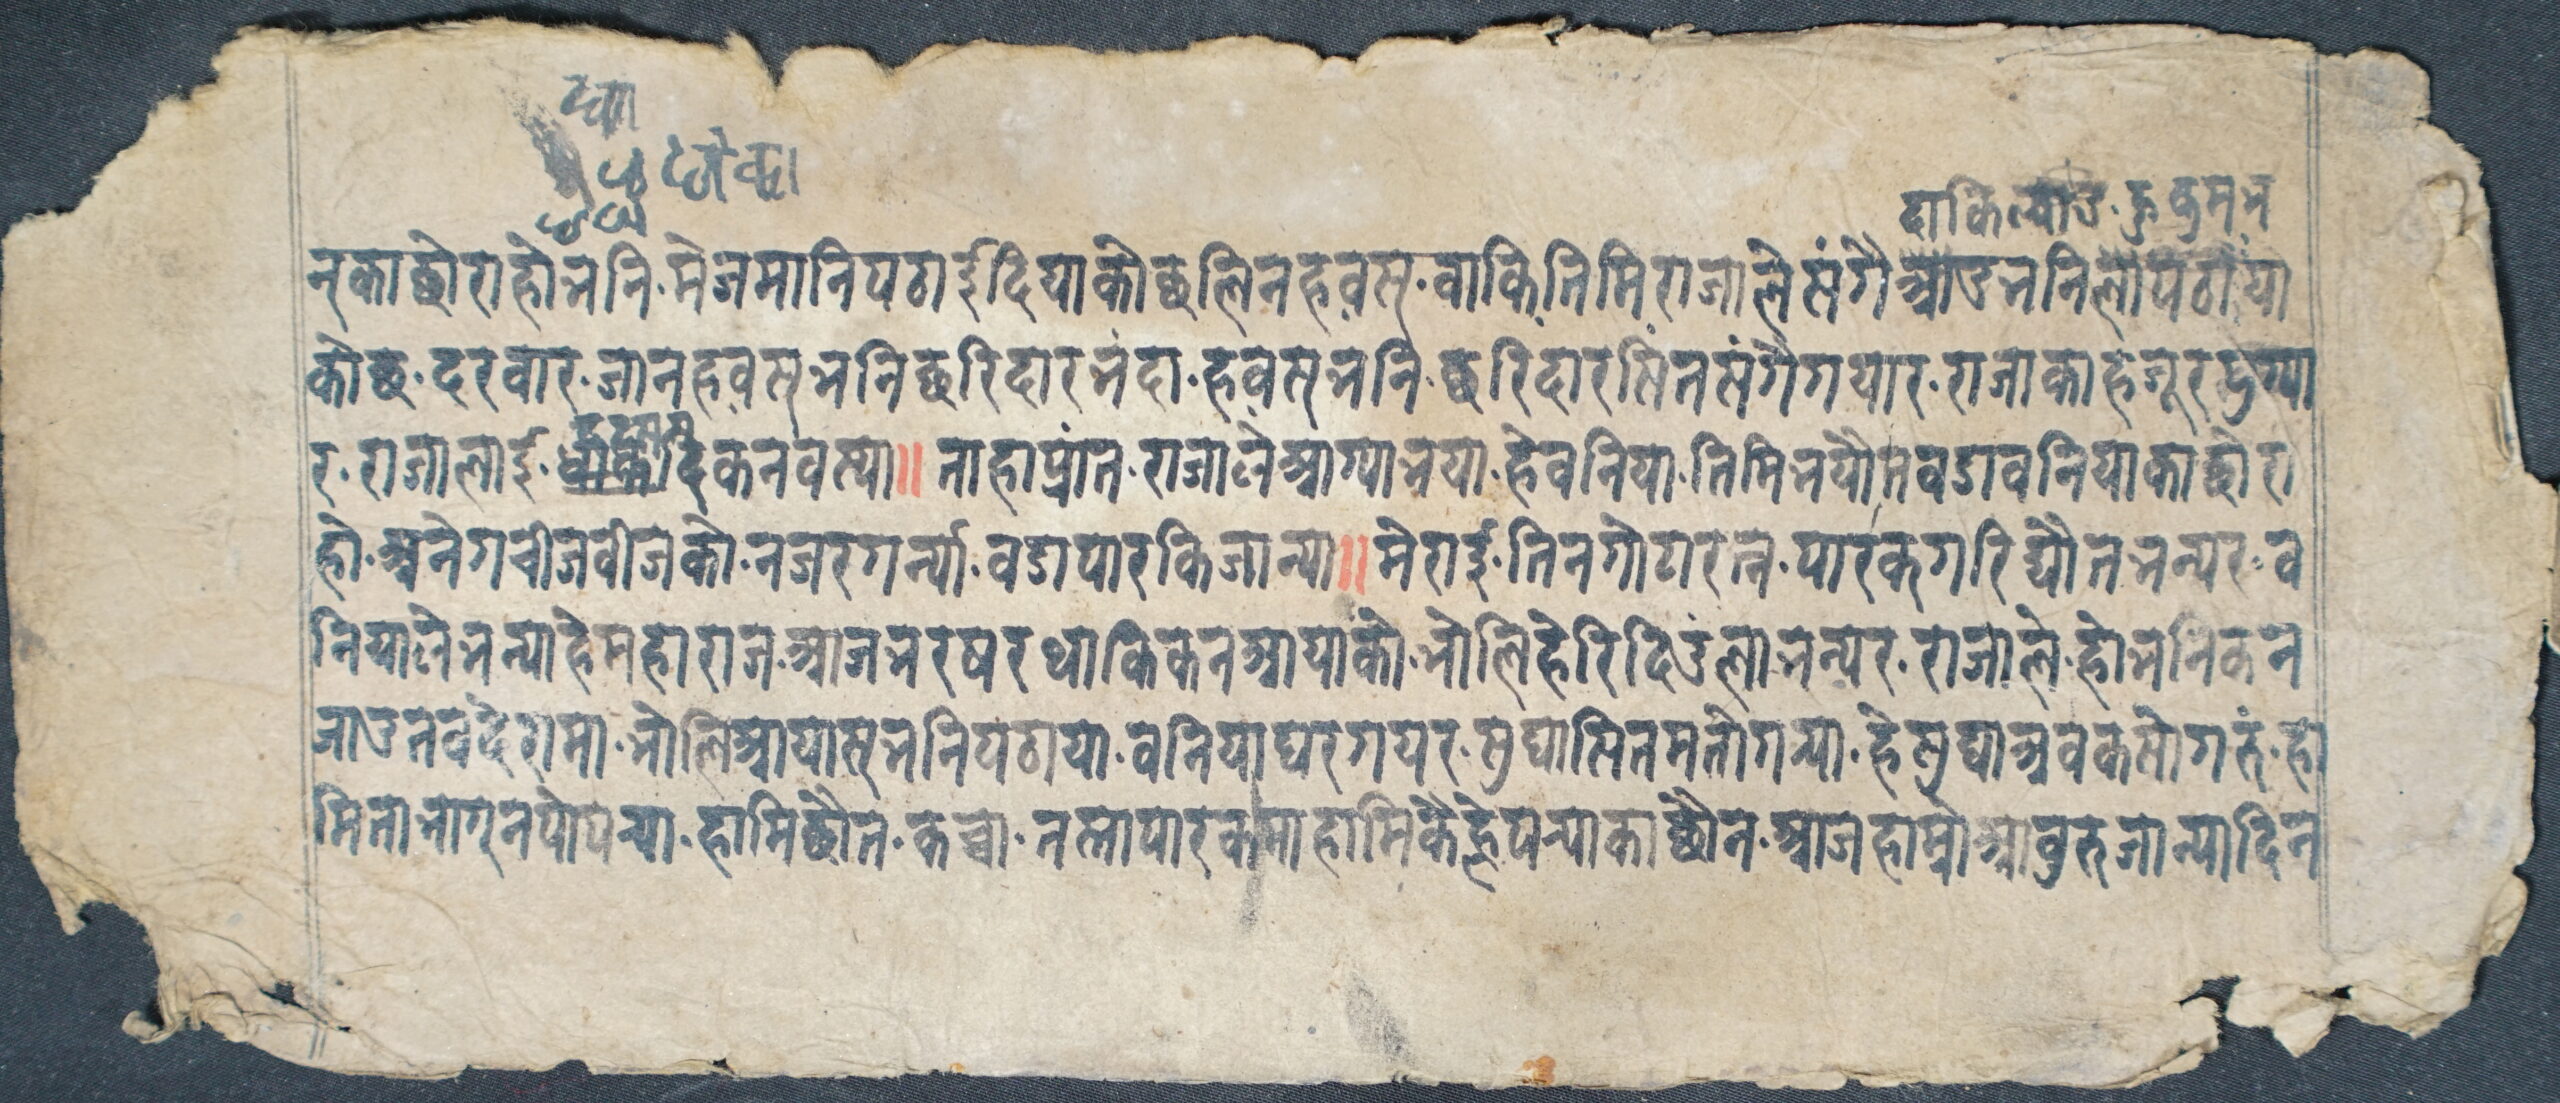 दाकिल्याउ हुकुमभ
न्काछोराहोभनि मेजमानिपठाईदियाकोछलिनहवस् वाकितिमिराजालेसंगैआउनभनिलापठाया
कोछ दरवार जानहवस्भनिछरिदारभंदा हवस्भनि छरिदारसितसंगैगयार राजाकाहजूरपुग्या
र राजालाई दिकनवस्या॥ ताहाप्रांत राजालेआग्याभया हेवनिया तिमिभयौतवडावनियाकाछोरा
हो अनेगचीजवीजको नजरगर्न्या वडापारकिजान्या॥ मेराई तिनगोटारत्न पारकगरिद्यौतभन्यर व
नियालेभन्याहेमहाराज आजभरषरथाकिकनआयाको भोलिहेरिदिउंलाभन्यर राजाले होभनिकन
जाउतवदेरामा भोलिआयास्भनिपठाया वनियाघरगयर सुघासितमतोगर्‍या हेसुघाअवकसोगरुं हा
मिताभागन्नपोपर्‍या हामिछौत कच्चा नत्मापारकमाहामिकैह्लेपर्‍याकाछौन आजहाम्रोआवुरुजान्यादिन